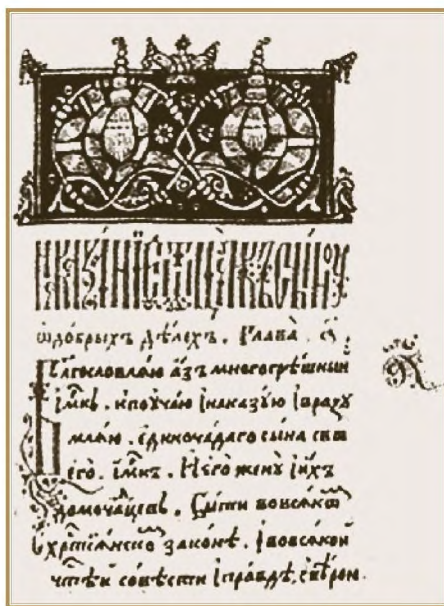 Наказанїе ѿ ѿца къ сынꙋ
ѡ добрыхъ дѣлехъ . Глава . а҃ ,
Благословлѧю азъ многогрѣшныи
имкъ . и поꙋчаю і наказꙋю і вразꙋ
млѧю . единочадаго сына сво
его . имкъ . и его женꙋ і ихъ
домочадцевъ . Быти во всѧком
хрⷭ҇тїѧнском законѣ . і во всѧкои
чⷭ҇тѣи совѣсти і правдѣ, с вѣрою